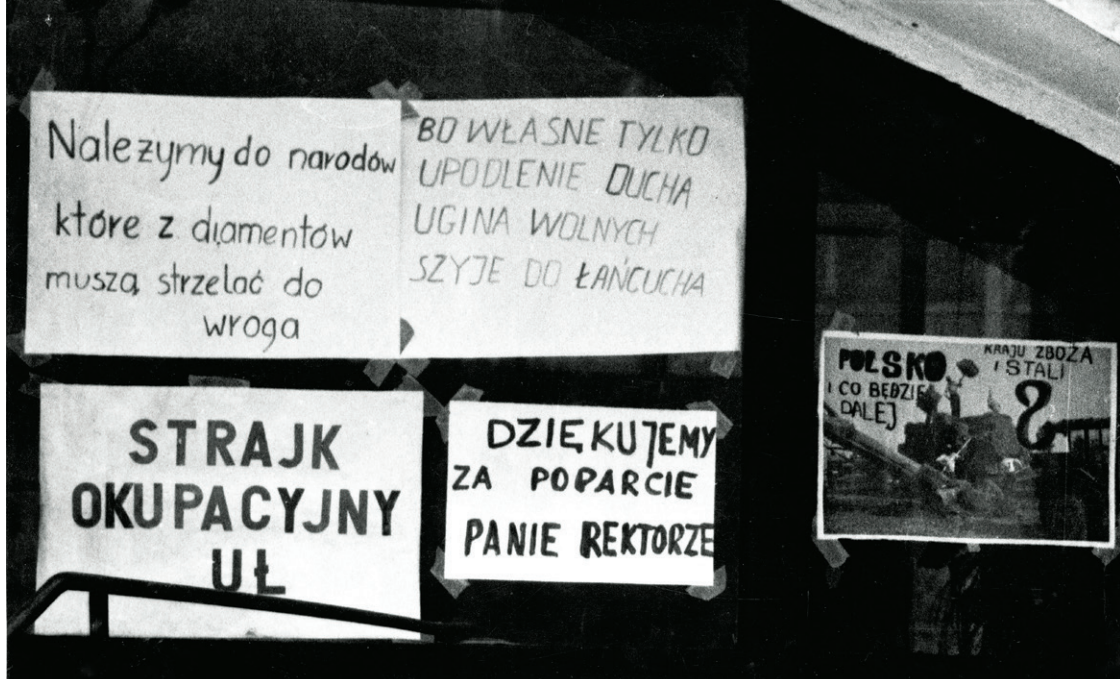 Należymy do narodów
które z diamentów
muszą strzelać do
wroga
BO WŁASNE TYLKO
UPODLENIE DUCHA
UGINA WOLNYCH
SZYJE DO ŁAŃCUCHA
STRAJK
OKUPACYJNY
UŁ
DZIĘKUJEMY
ZA POPARCIE
PANIE REKTORZE
POLSKO
KRAJU ZBOŻA
I STALI
I CO BĘDZIE
DALEJ